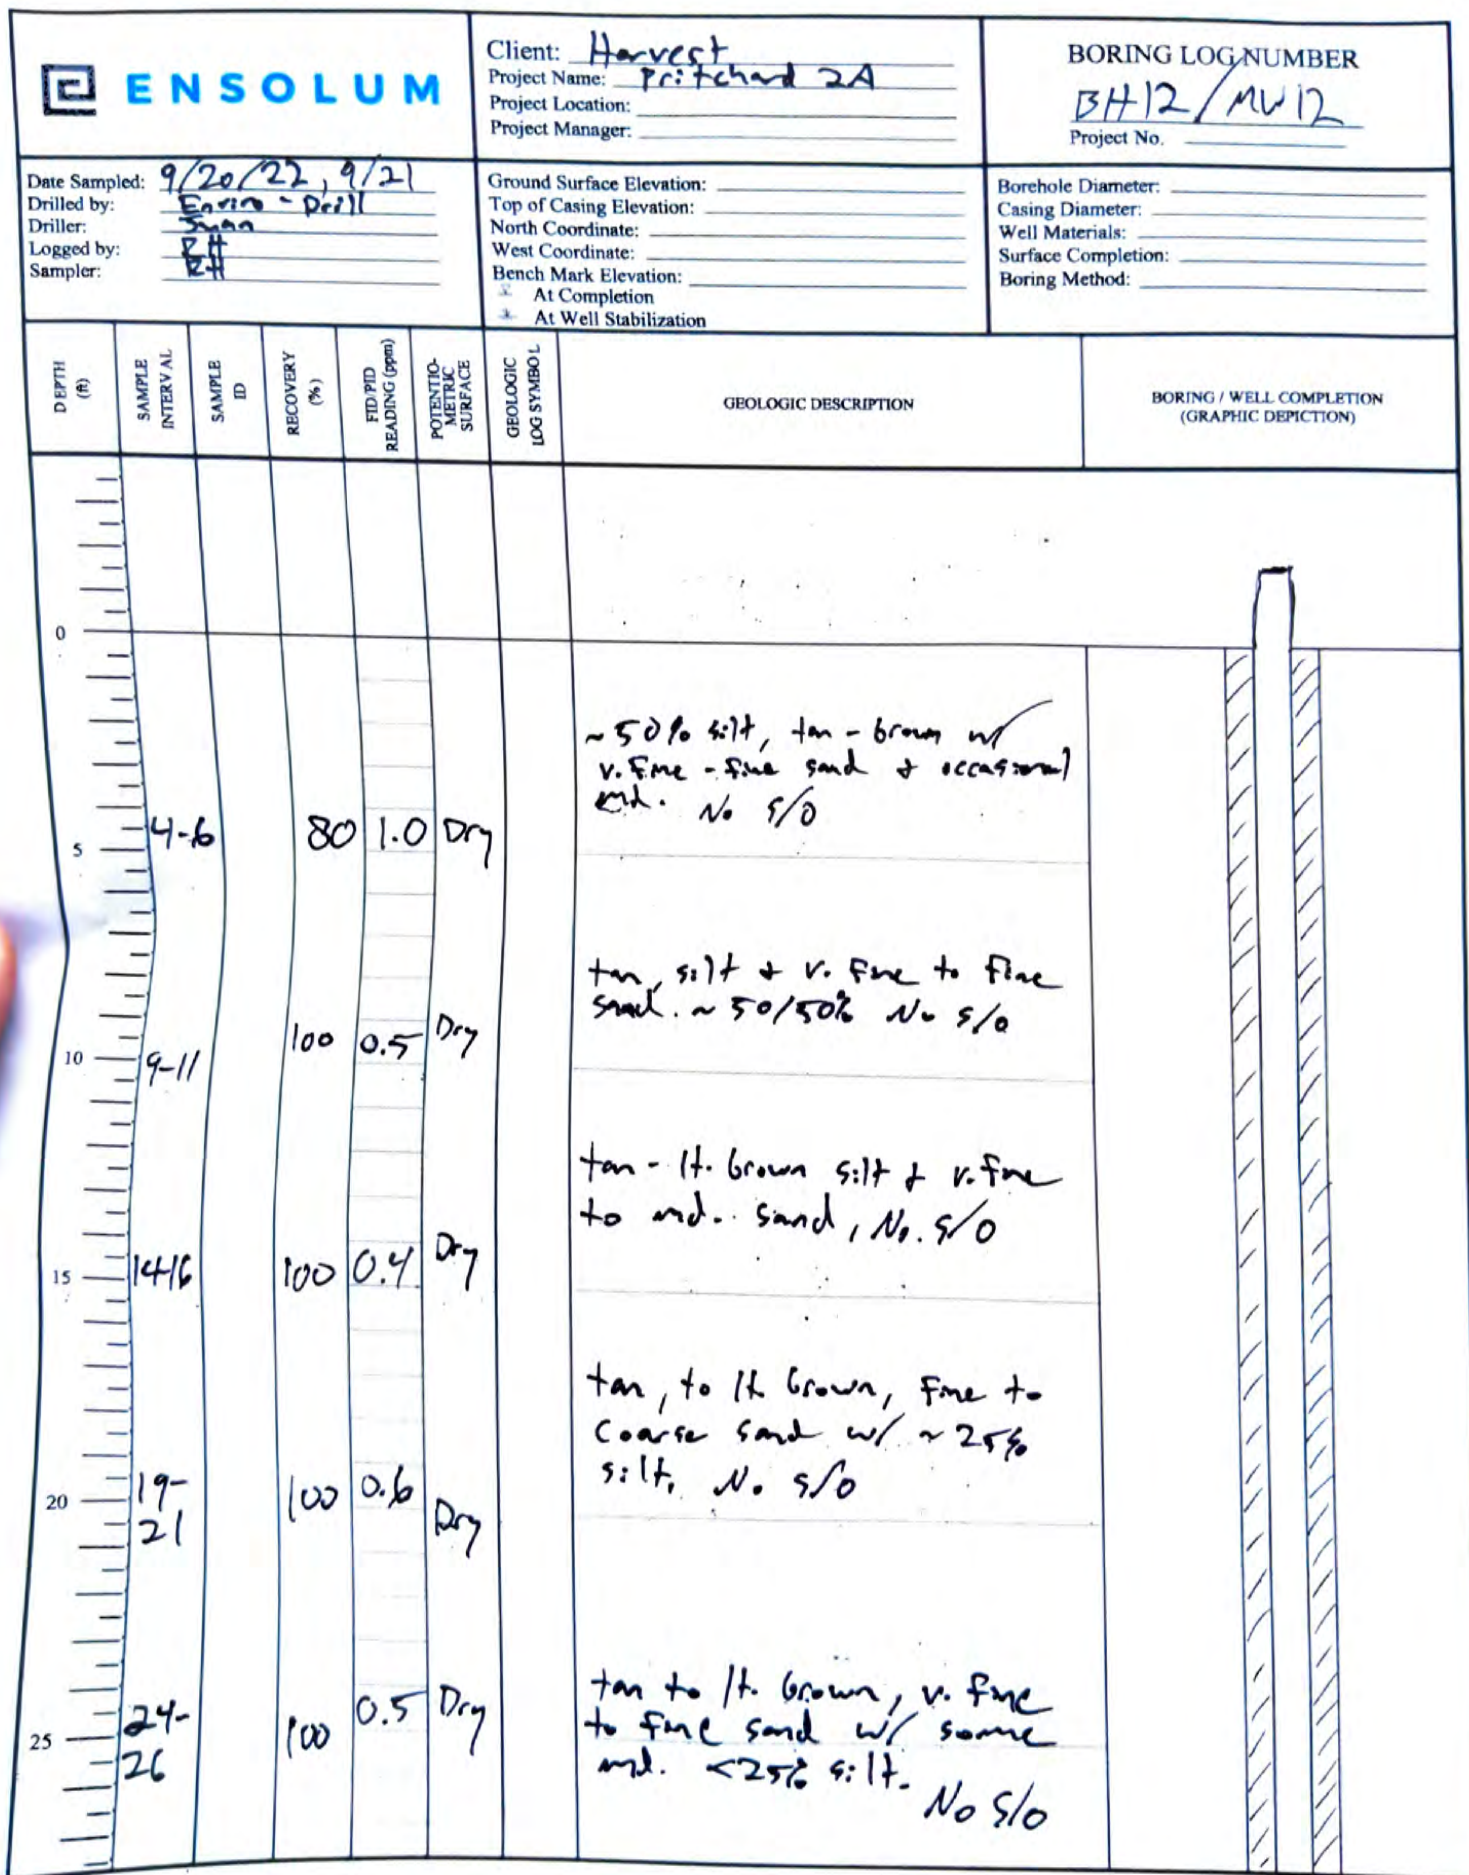 ENSOLUM
Client: Harvest
Project Name: Pritchard 2A
Project Location:
Project Manager:
BORING LOG NUMBER
BH12/MW12
Project No.
Date Sampled: 9/20/22, 9/21
Drilled by: Enviro-Drill
Driller:
Logged by: RH
Sampler: RH
Ground Surface Elevation:
Top of Casing Elevation:
North Coordinate:
West Coordinate:
Bench Mark Elevation:
At Completion
At Well Stabilization
Borehole Diameter:
Casing Diameter:
Well Materials:
Surface Completion:
Boring Method:
DEPTH (ft)
SAMPLE INTERVAL
SAMPLE ID
RECOVERY (%)
FID/PID READING (ppm)
POTENTIO-METRIC SURFACE
GEOLOGIC LOG SYMBOL
GEOLOGIC DESCRIPTION
BORING / WELL COMPLETION
(GRAPHIC DEPICTION)
0
~50% silt, tan - brown w/
v. fine - fine sand + occasional
md. No s/o
5 4-6 80 1.0 Dry
tan, silt + v. fine to fine
sand. ~50/50% No s/o
10 9-11 100 0.5 Dry
tan - lt. brown silt + v. fine
to md. sand, No. s/o
15 14-16 100 0.4 Dry
tan, to lt brown, fine to
coarse sand w/ ~25%
silt. No s/o
20 19-21 100 0.6 Dry
tan to lt. brown, v. fine
to fine sand w/ some
md. <25% silt.
No s/o
25 24-26 100 0.5 Dry